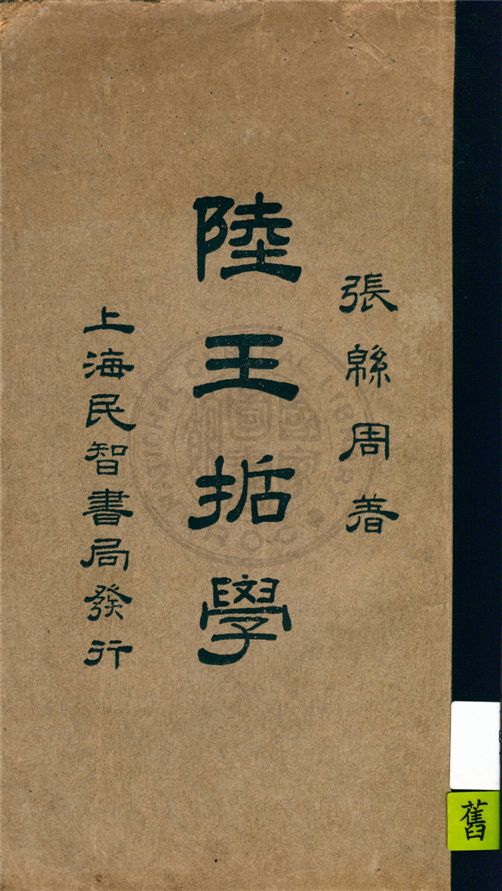 張緜周著
陸王哲學
上海民智書局發行
舊